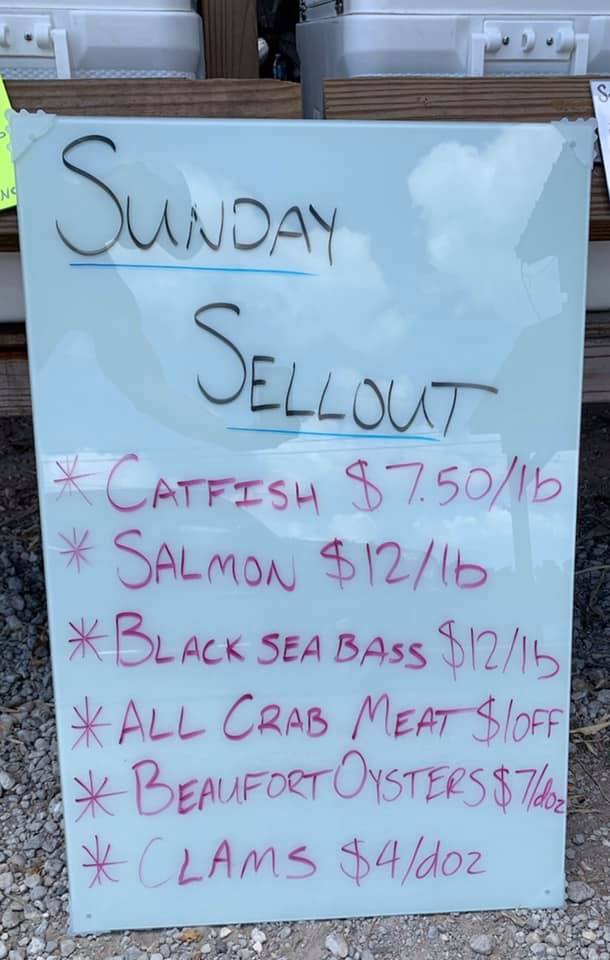 SUNDAY
SELLOUT
* CATFISH $7.50/lb
* SALMON $12/lb
* BLACK SEA BASS $12/lb
* ALL CRAB MEAT $1 OFF
* BEAUFORT OYSTERS $7/doz
* CLAMS $4/doz